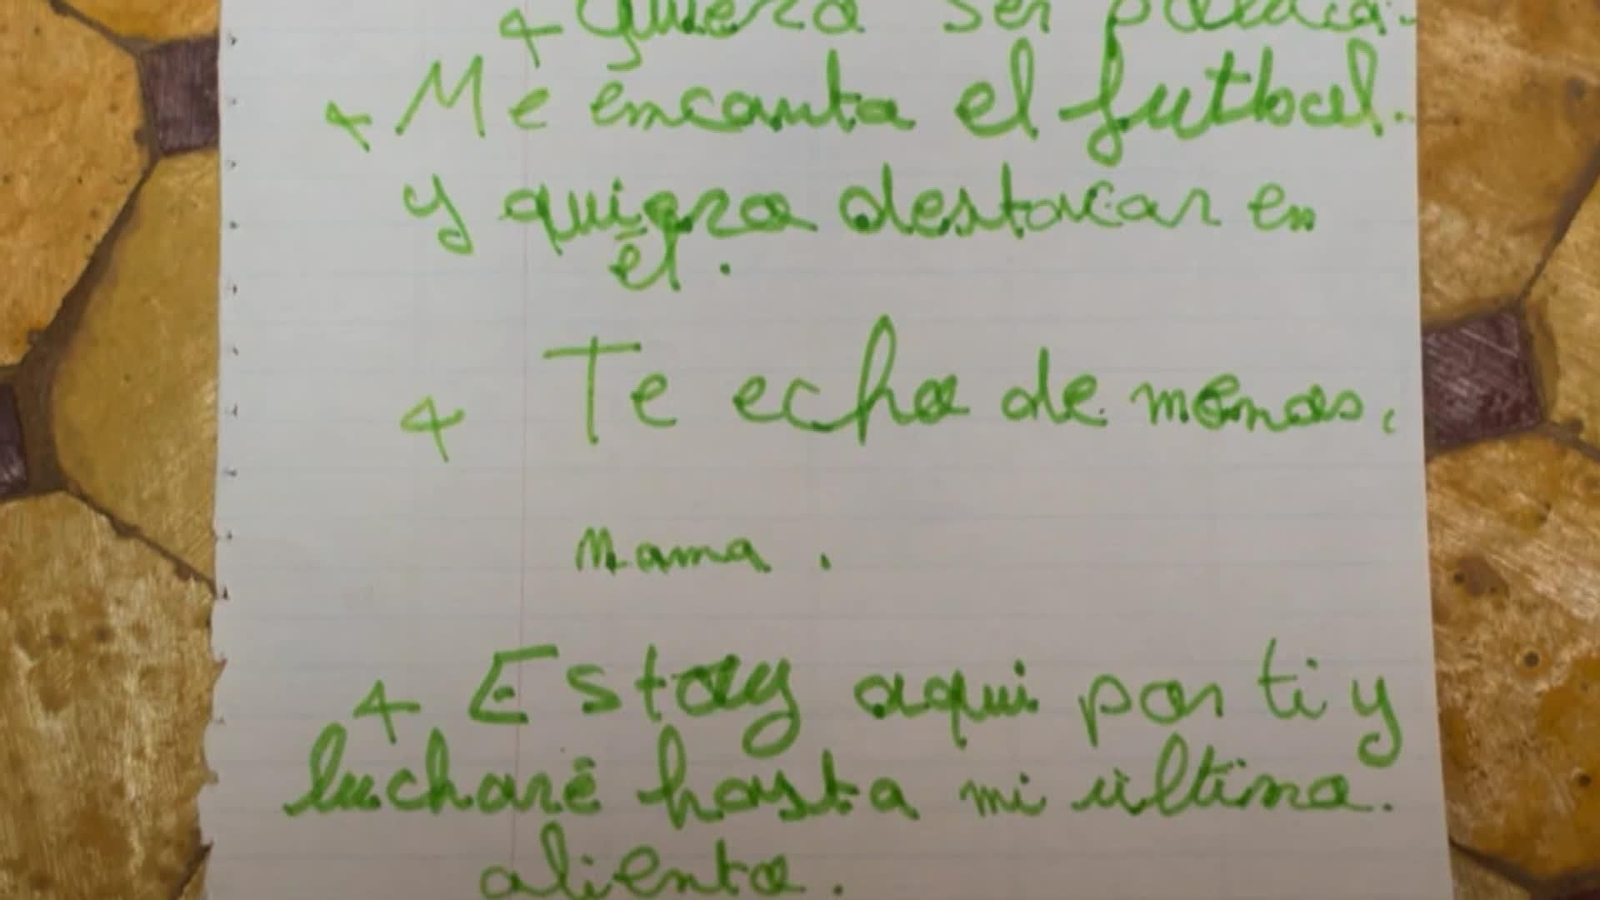 + Quiero ser policía.
+ Me encanta el futbol.
y quiero destacar en
él.
+ Te echo de menos,
mama.
+ Estoy aqui por ti y
lucharé hasta mi último.
aliento.